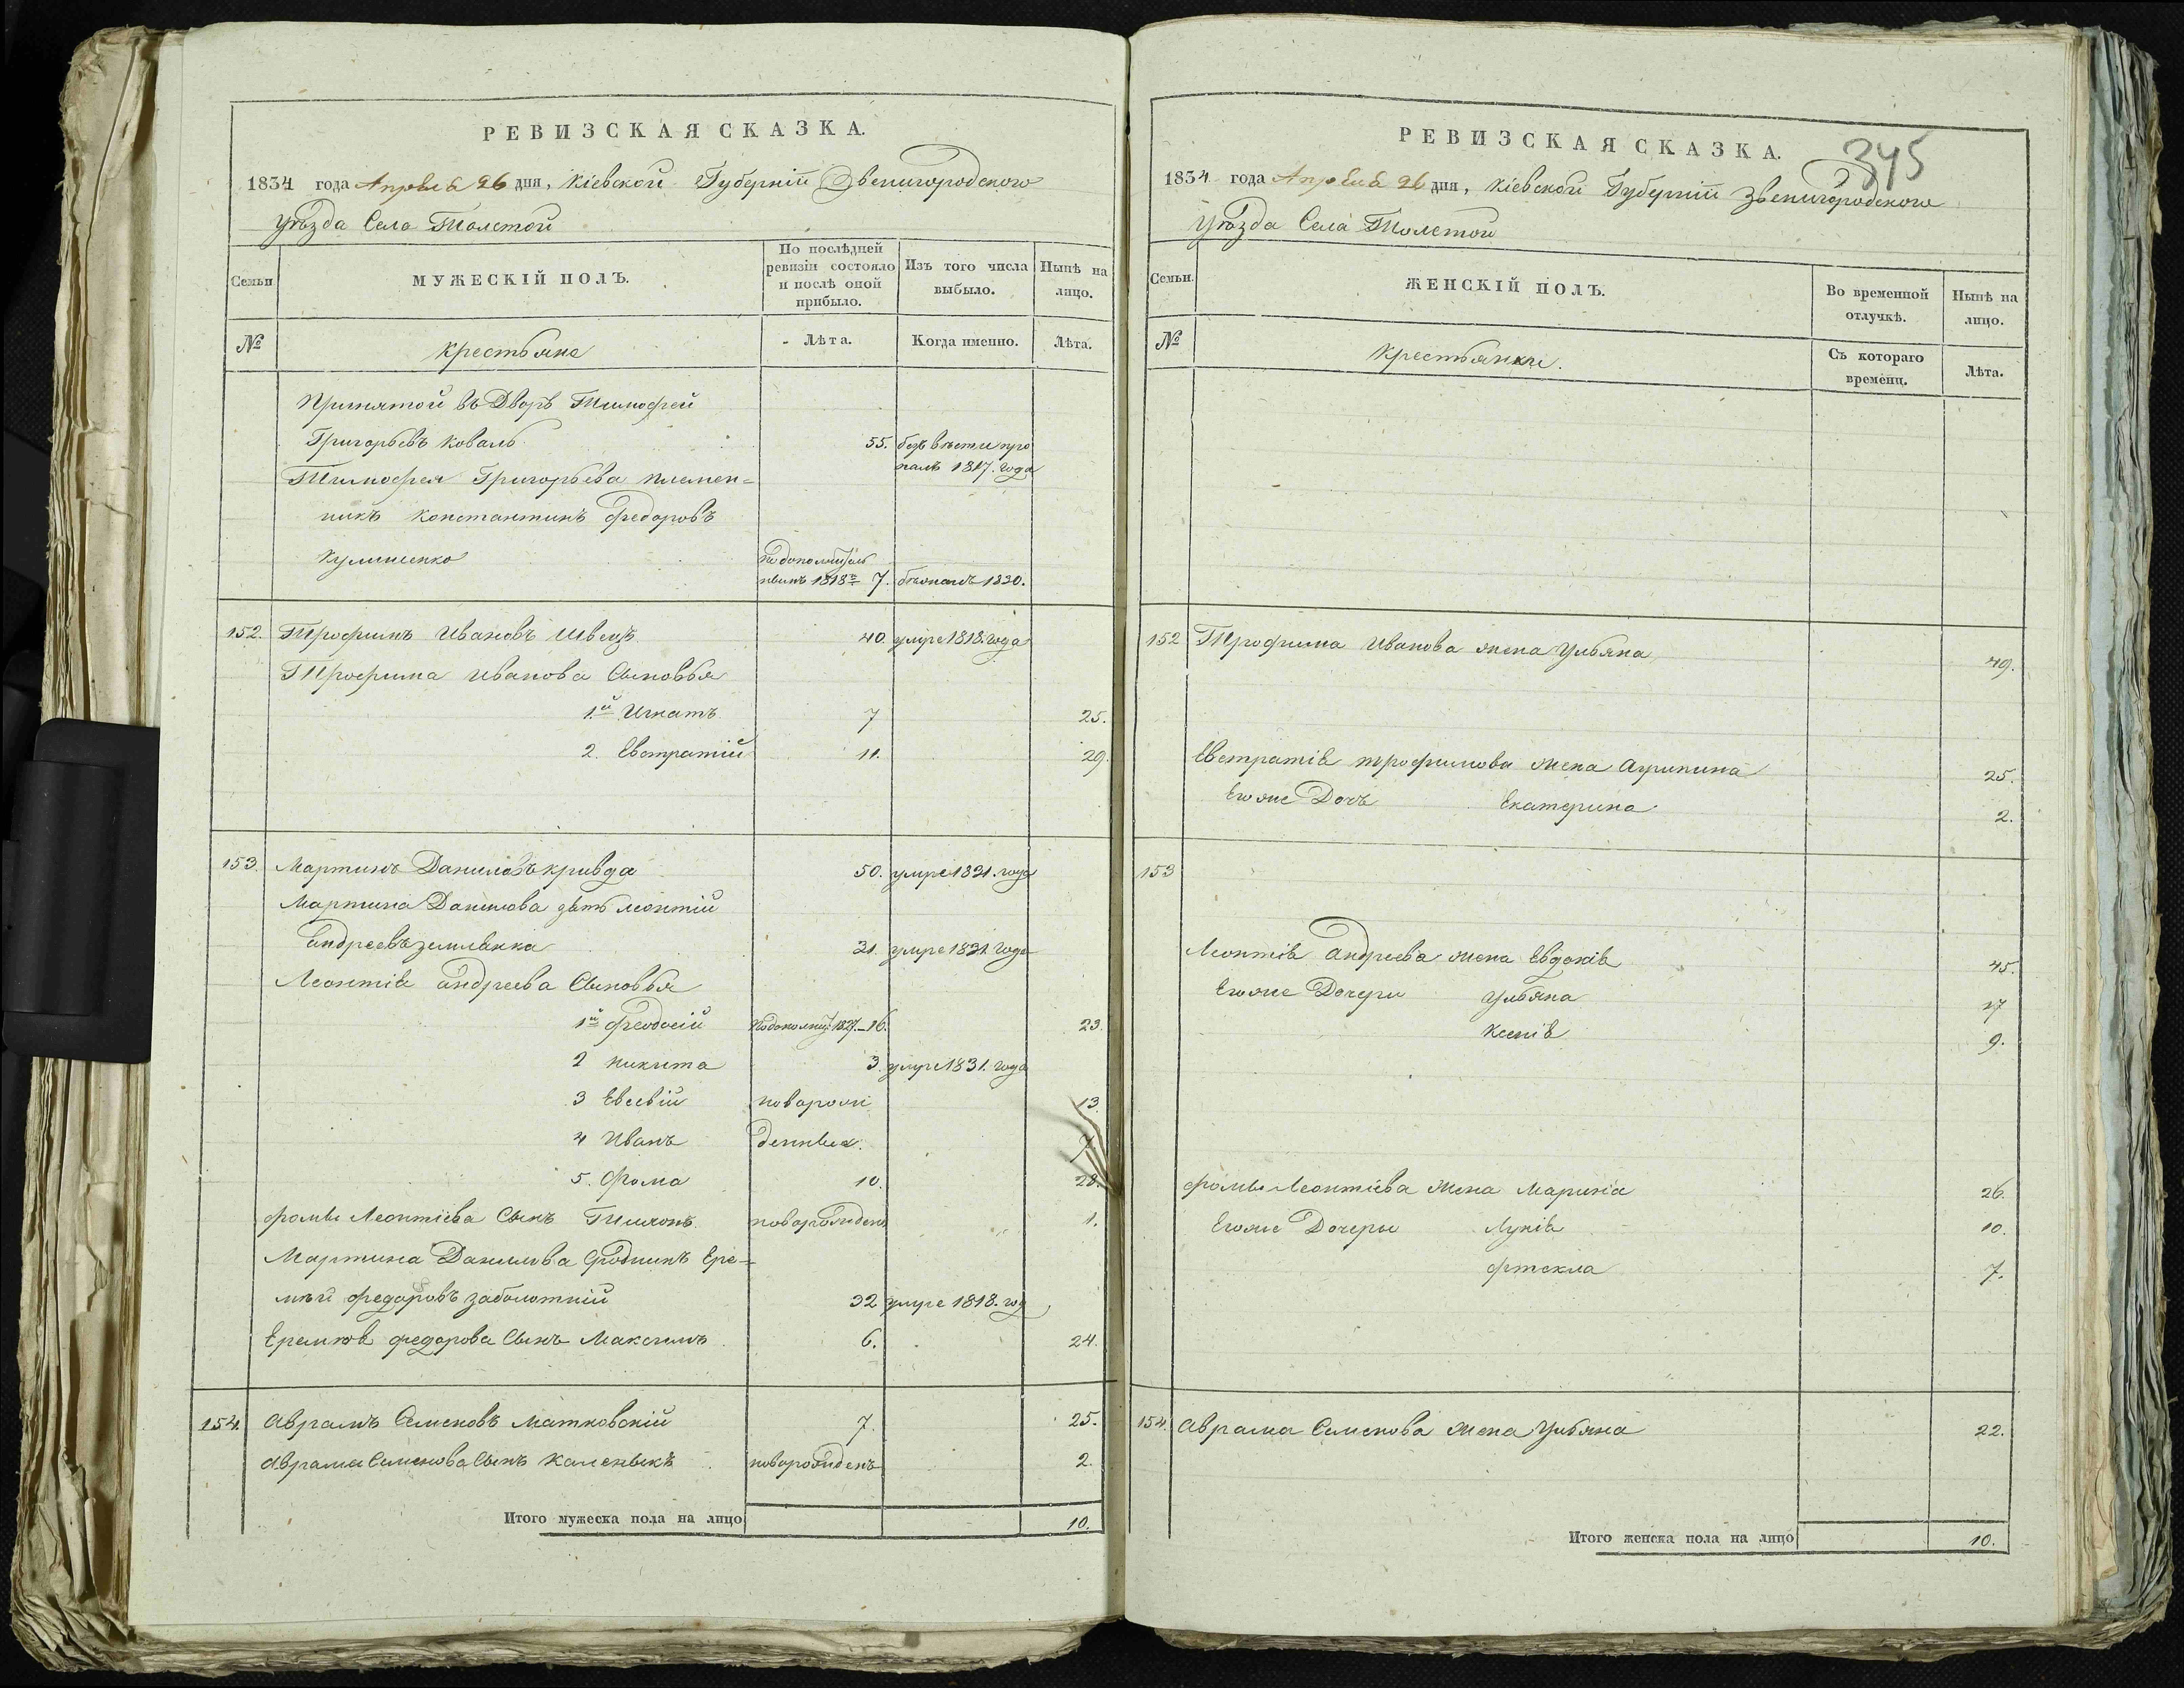 РЕВИЗСКАЯ СКАЗКА.
1834 года Апреля 26 дня, Кіевской Губерніи Звенигородского
уезда Села Толстой
Семьи
МУЖЕСКІЙ ПОЛЪ.
По послѣдней ревизіи состояло и послѣ оной прибыло.
Изъ того числа выбыло.
Нынѣ на лицо.
№
Крестьяне
Лѣта.
Когда именно.
Лѣта.
Принятой въ Дворъ Тимофей
Григорьевъ Коваль 55. безъ вести про
палъ 1817. года
Тимофея Григорьева племен=
никъ Константинъ Федоровъ
Кулиненко
нымъ 1818 7. бежалъ 1820.
152. Трофимъ Ивановъ Швецъ 40. умре 1818. года
Трофима Иванова Сыновья
1й Игнатъ 7 25.
2. Евстратій 11. 29.
153. Мартинъ Даниловъ Кривда 50. умре 1821. года
Мартина Данилова зять Леонтій
Андреевъ Землянка 31. умре 1831. года
Леонтія Андреева Сыновья
1й Феодосій 1827.–16. 23.
2 Никита 3. умре 1831. года
3 Евсевій новорож 13.
4 Иванъ денныя. 7.
5. Фома 10. 28.
Фомы Леонтіева Сынъ Тимонъ новорожденъ 1.
Мартина Данилова Сродникъ Ере=
мей Федоровъ Заболотній 32 умре 1818. год
Еремея Федорова Сынъ Максимъ 6. 24.
154. Аврамъ Семеновъ Матковскій 7. 25.
Аврама Семенова Сынъ Каленыкъ новорожденъ 2.
Итого мужеска пола на лицо 10.
345
РЕВИЗСКАЯ СКАЗКА.
1834 года Апреля 26 дня, Кіевской Губерніи Звенигородского
уезда Села Толстой
Семьи.
ЖЕНСКІЙ ПОЛЪ.
Во временной отлучкѣ.
Нынѣ на лицо.
№
Крестьянки.
Съ котораго времени.
Лѣта.
152 Трофима Иванова жена Ульяна 49.
Евстратія Трофимова жена Агрипина 25.
Егоже Дочь Екатерина 2.
153
Леонтія Андреева жена Евдокія 45.
Егоже Дочери Ульяна 17
Ксенія 9.
Фомы Леонтіева жена Марина 26.
Егоже Дочеры Лукія 10.
Фтекла 7.
154. Аврама Семенова жена Ульяна 22.
Итого женска пола на лицо 10.